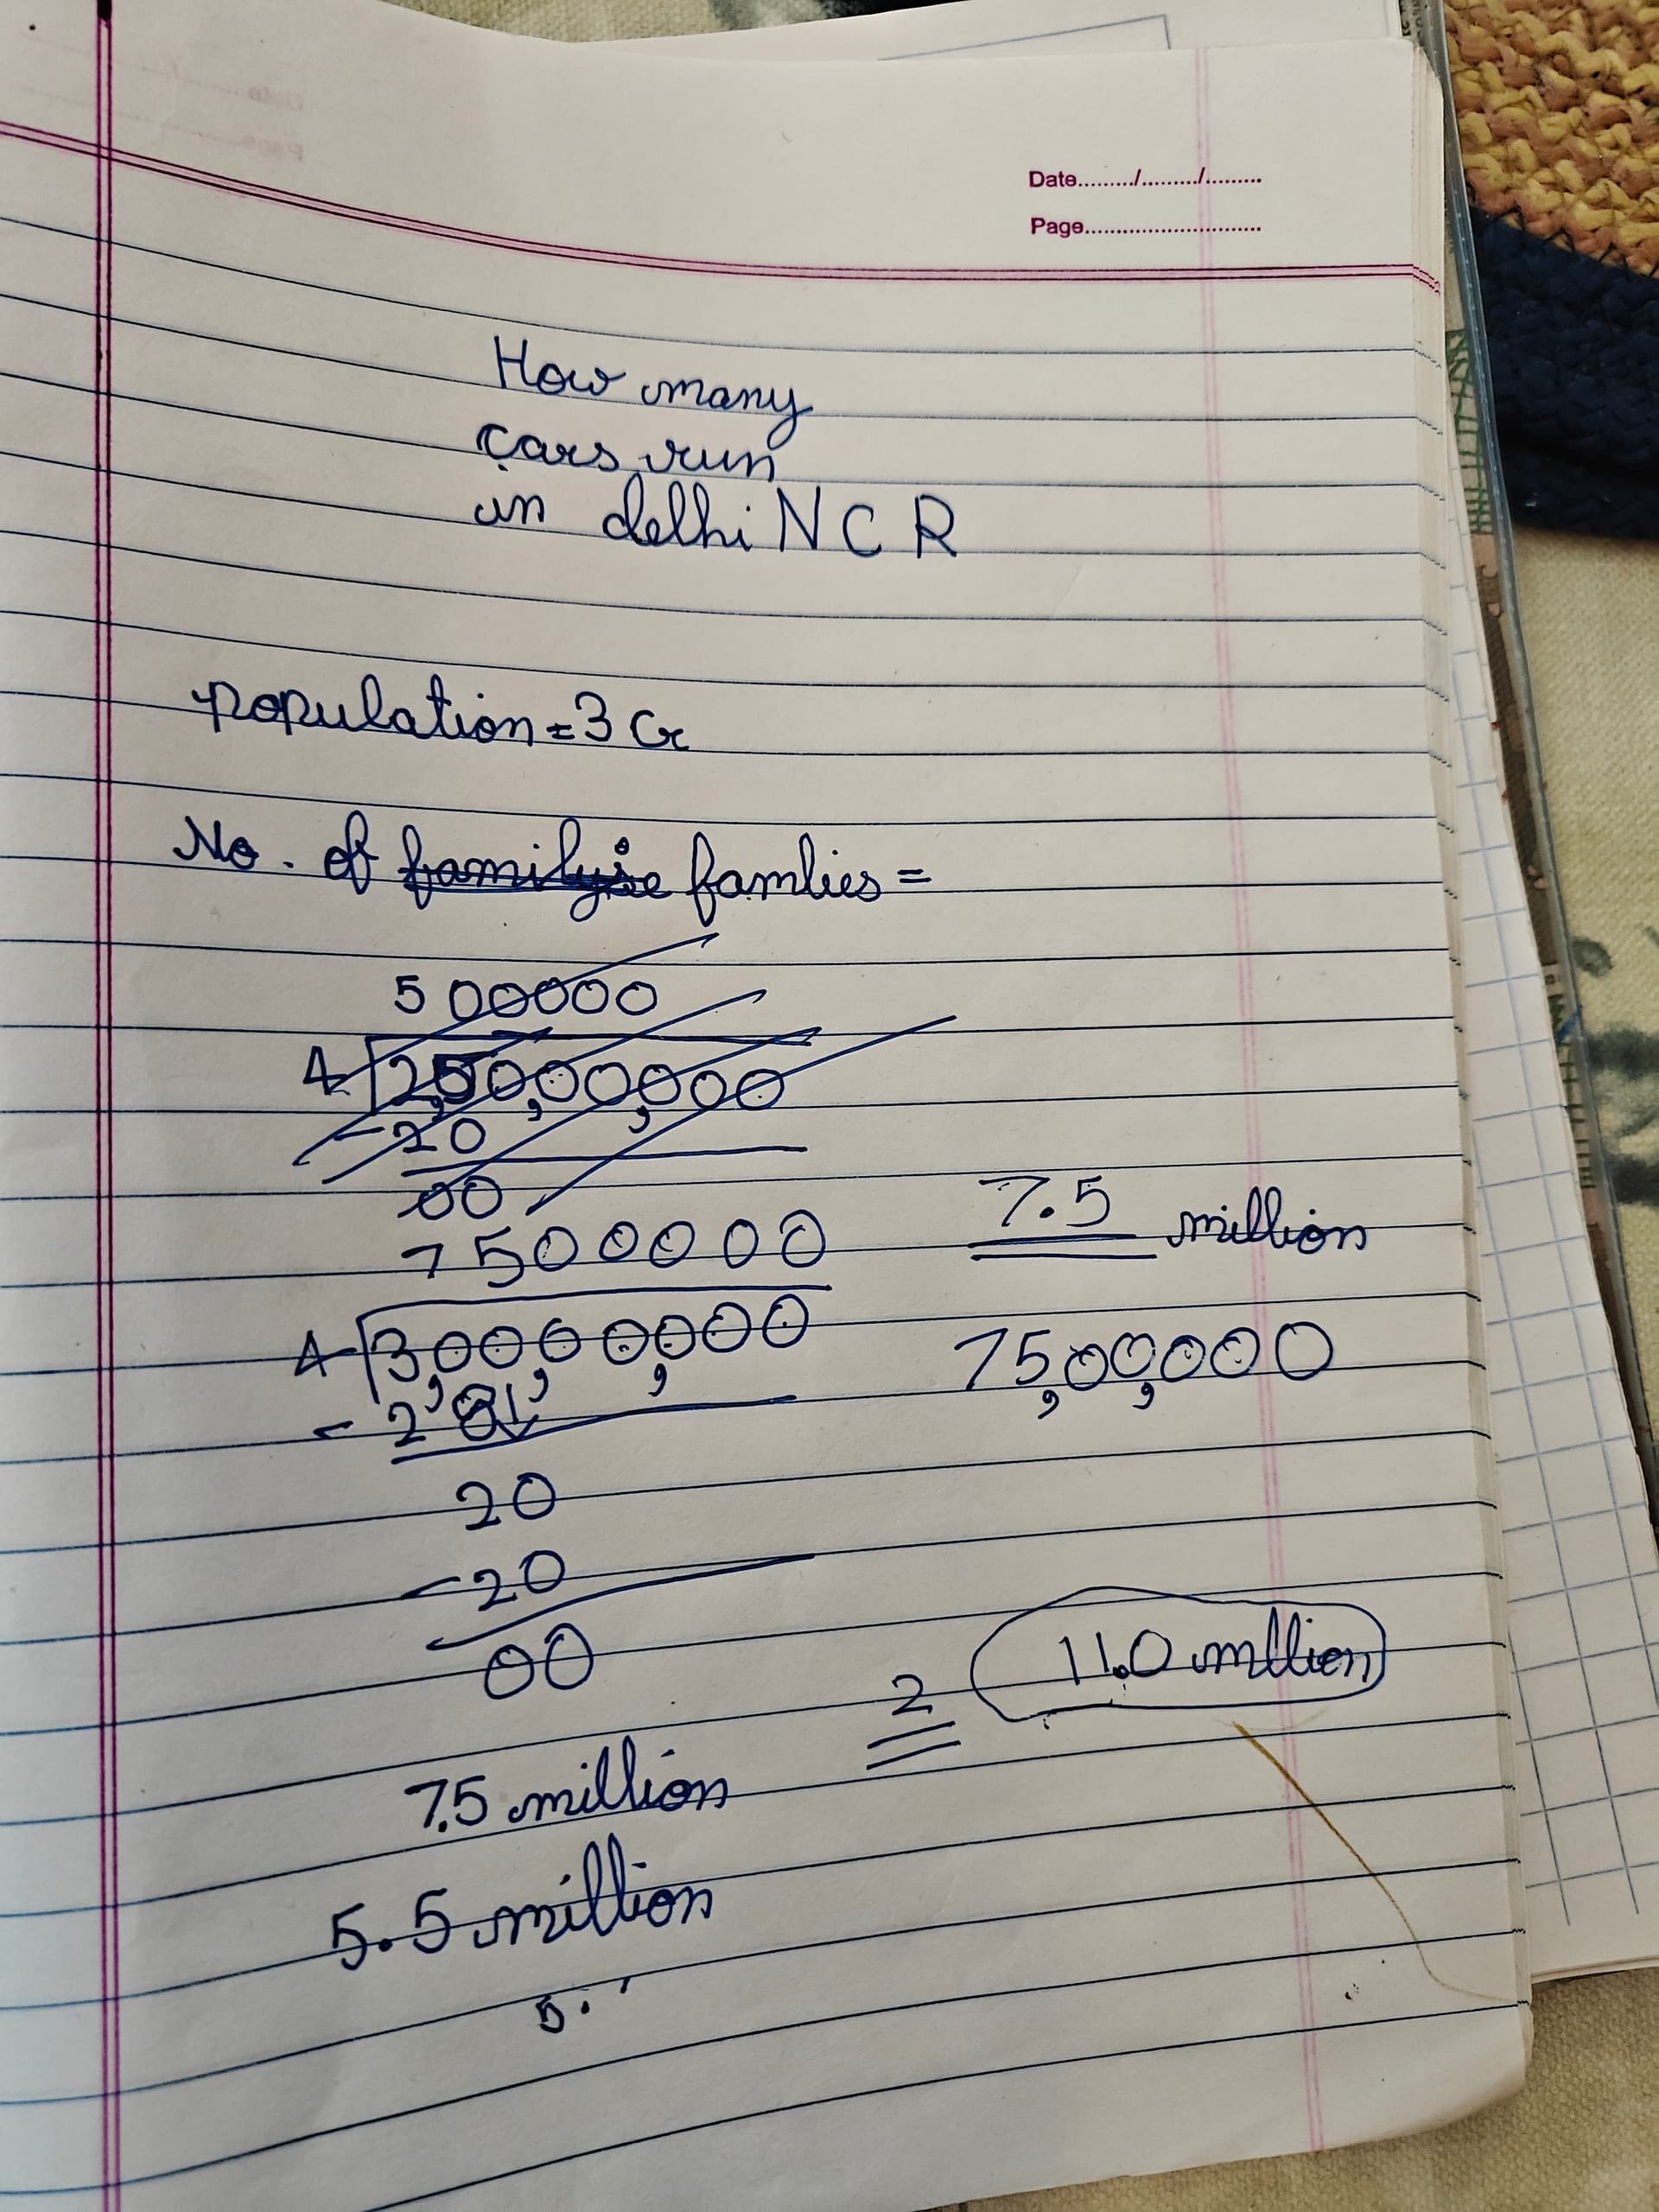 Date........./........./.........
Page.............................
How many
cars run
in delhi N C R
population = 3 Cr
No. of familyie famlies =
500000
4 2,50,00,000
- 20
00
7500000
7.5 million
4 3,00,00,000
75,00,000
- 28
20
- 20
00
11.0 mllion
2
7.5 million
5.5 million
5.